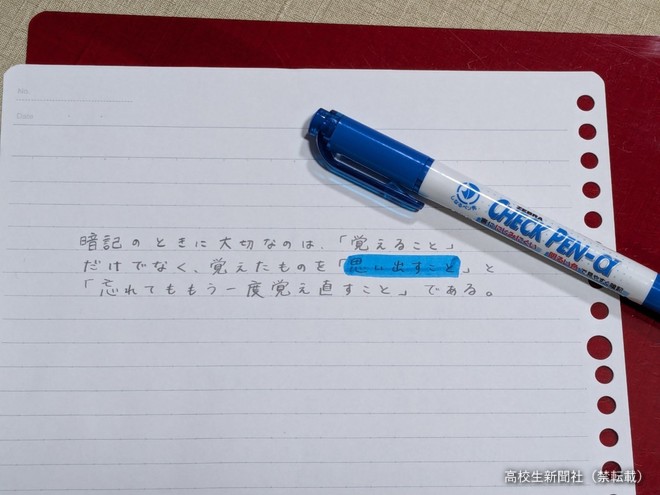 No.
Date
暗記のときに大切なのは、「覚えること」
だけでなく、覚えたものを「思い出すこと」と
「忘れてももう一度覚え直すこと」である。
ZEBRA
CHECK PEN-α
高校生新聞社（禁転載）